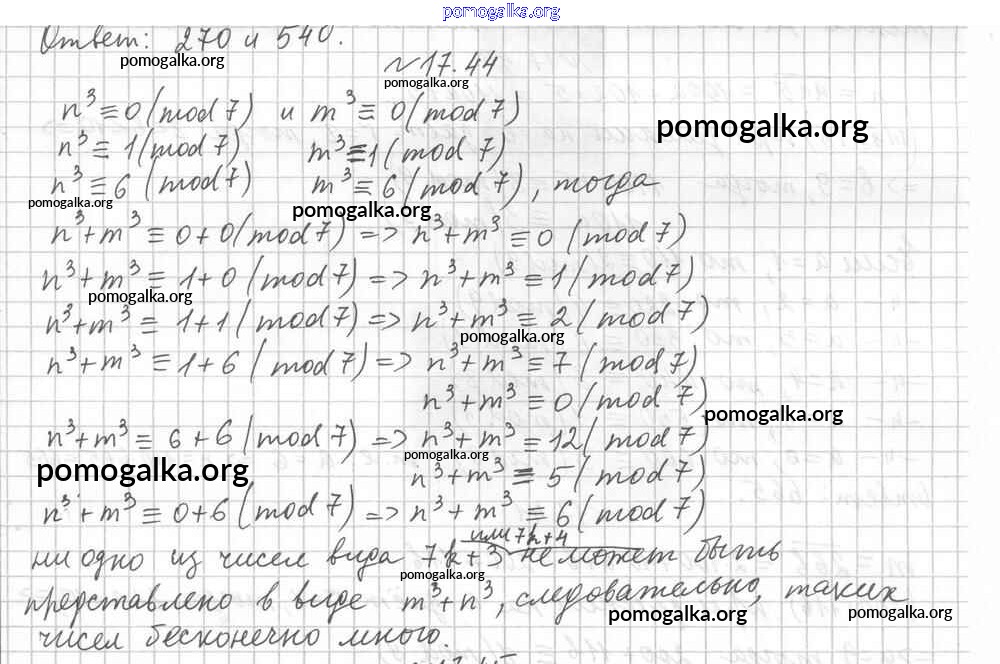 pomogalka.org
Ответ: 270 и 540.
pomogalka.org
№17.44
pomogalka.org
n³≡0(mod 7) и m³≡0(mod 7)
pomogalka.org
n³≡1(mod 7) m³≡1(mod 7)
n³≡6(mod 7) m³≡6(mod 7), тогда
pomogalka.org
pomogalka.org
n³+m³≡0+0(mod 7)=> n³+m³≡0(mod 7)
n³+m³≡1+0(mod 7)=> n³+m³≡1(mod 7)
pomogalka.org
n³+m³≡1+1(mod 7)=> n³+m³≡2(mod 7)
pomogalka.org
n³+m³≡1+6(mod 7)=> n³+m³≡7(mod 7)
n³+m³≡0(mod 7)
pomogalka.org
n³+m³≡6+6(mod 7)=> n³+m³≡12(mod 7)
pomogalka.org
pomogalka.org
n³+m³≡5(mod 7)
n³+m³≡0+6(mod 7)=> n³+m³≡6(mod 7)
или 7k+4
ни одно из чисел вида 7k+3 не может быть
pomogalka.org
представлено в виде m³+n³, следовательно, таких
pomogalka.org
pomogalka.org
чисел бесконечно много.